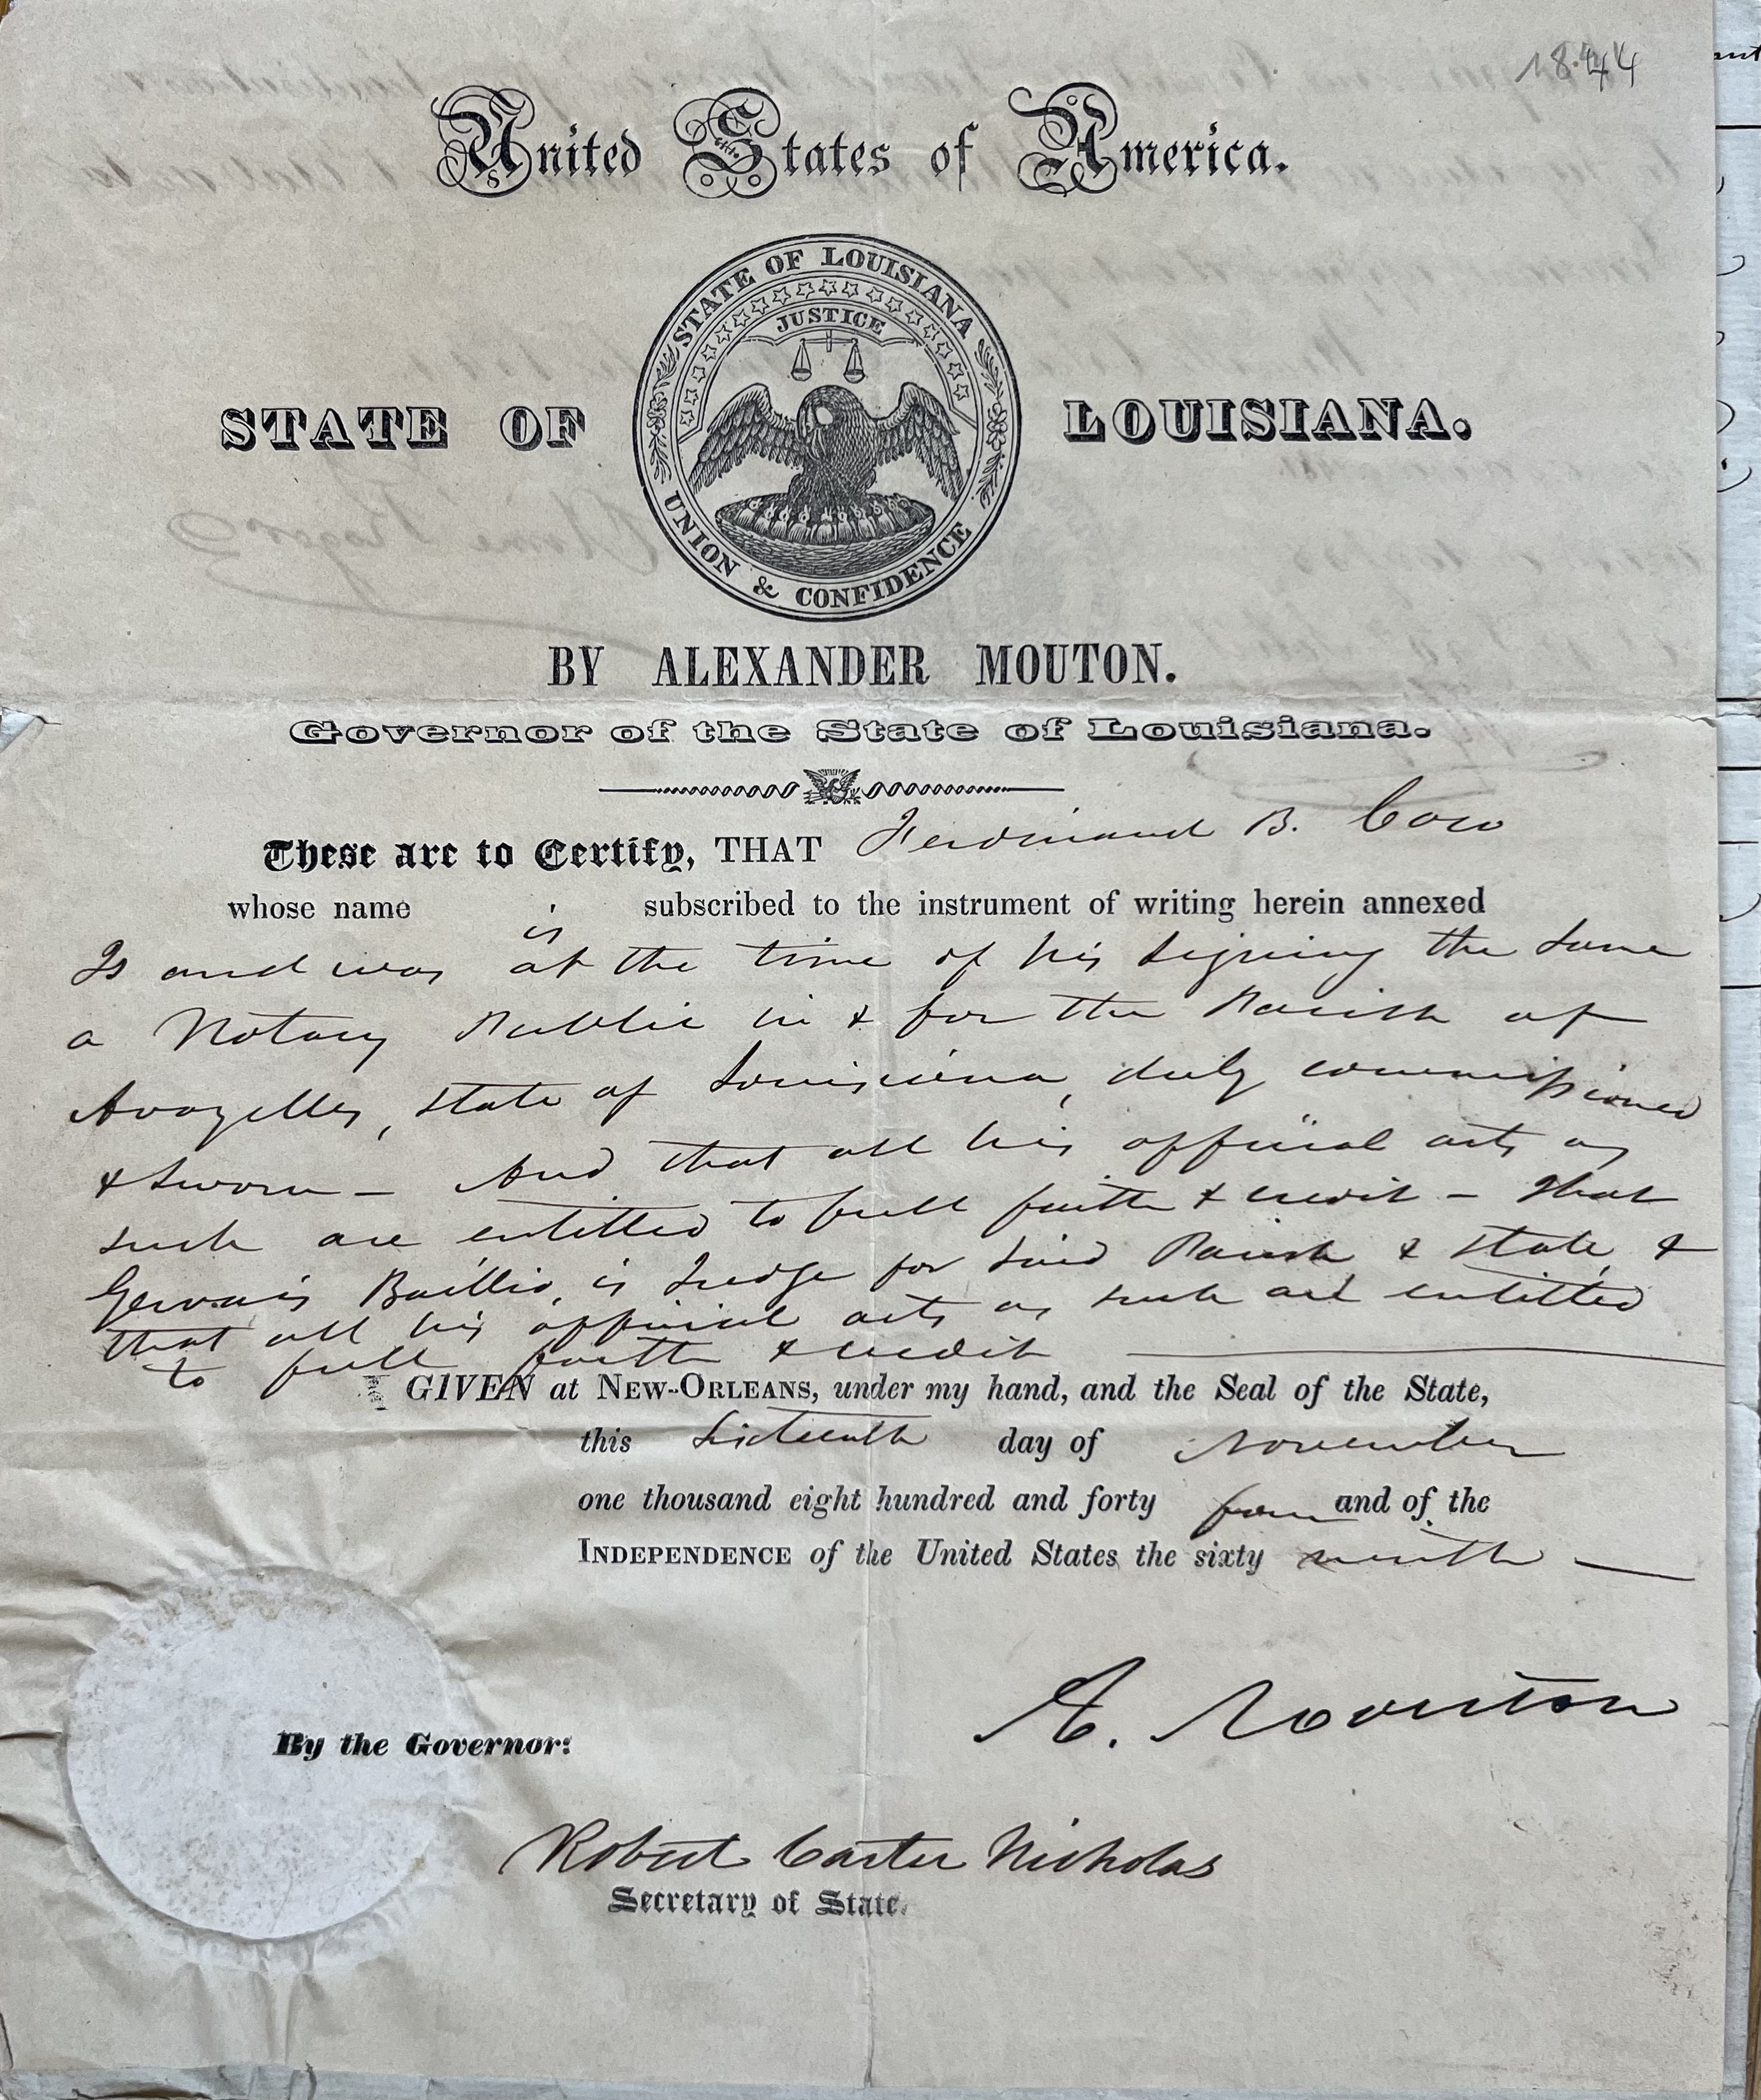 18.44
United States of America.
STATE OF LOUISIANA
JUSTICE
UNION & CONFIDENCE
STATE OF LOUISIANA.
BY ALEXANDER MOUTON.
Governor of the State of Louisiana.
These are to Certify, THAT Ferdinand B. Coco
whose name is subscribed to the instrument of writing herein annexed
Is and was at the time of his signing the same
a Notary Public in & for the Parish of
Avoyelles, State of Louisiana, duly commissioned
& sworn – And that all his official acts as
such are entitled to full faith & credit – that
Gervais Baillio, is Judge for said Parish & State, &
that all his official acts as such are entitled
to full faith & credit
GIVEN at NEW-ORLEANS, under my hand, and the Seal of the State,
this sixteenth day of November
one thousand eight hundred and forty four and of the
INDEPENDENCE of the United States the sixty ninth —
A. Mouton
By the Governor:
Robert Carter Nicholas
Secretary of State.